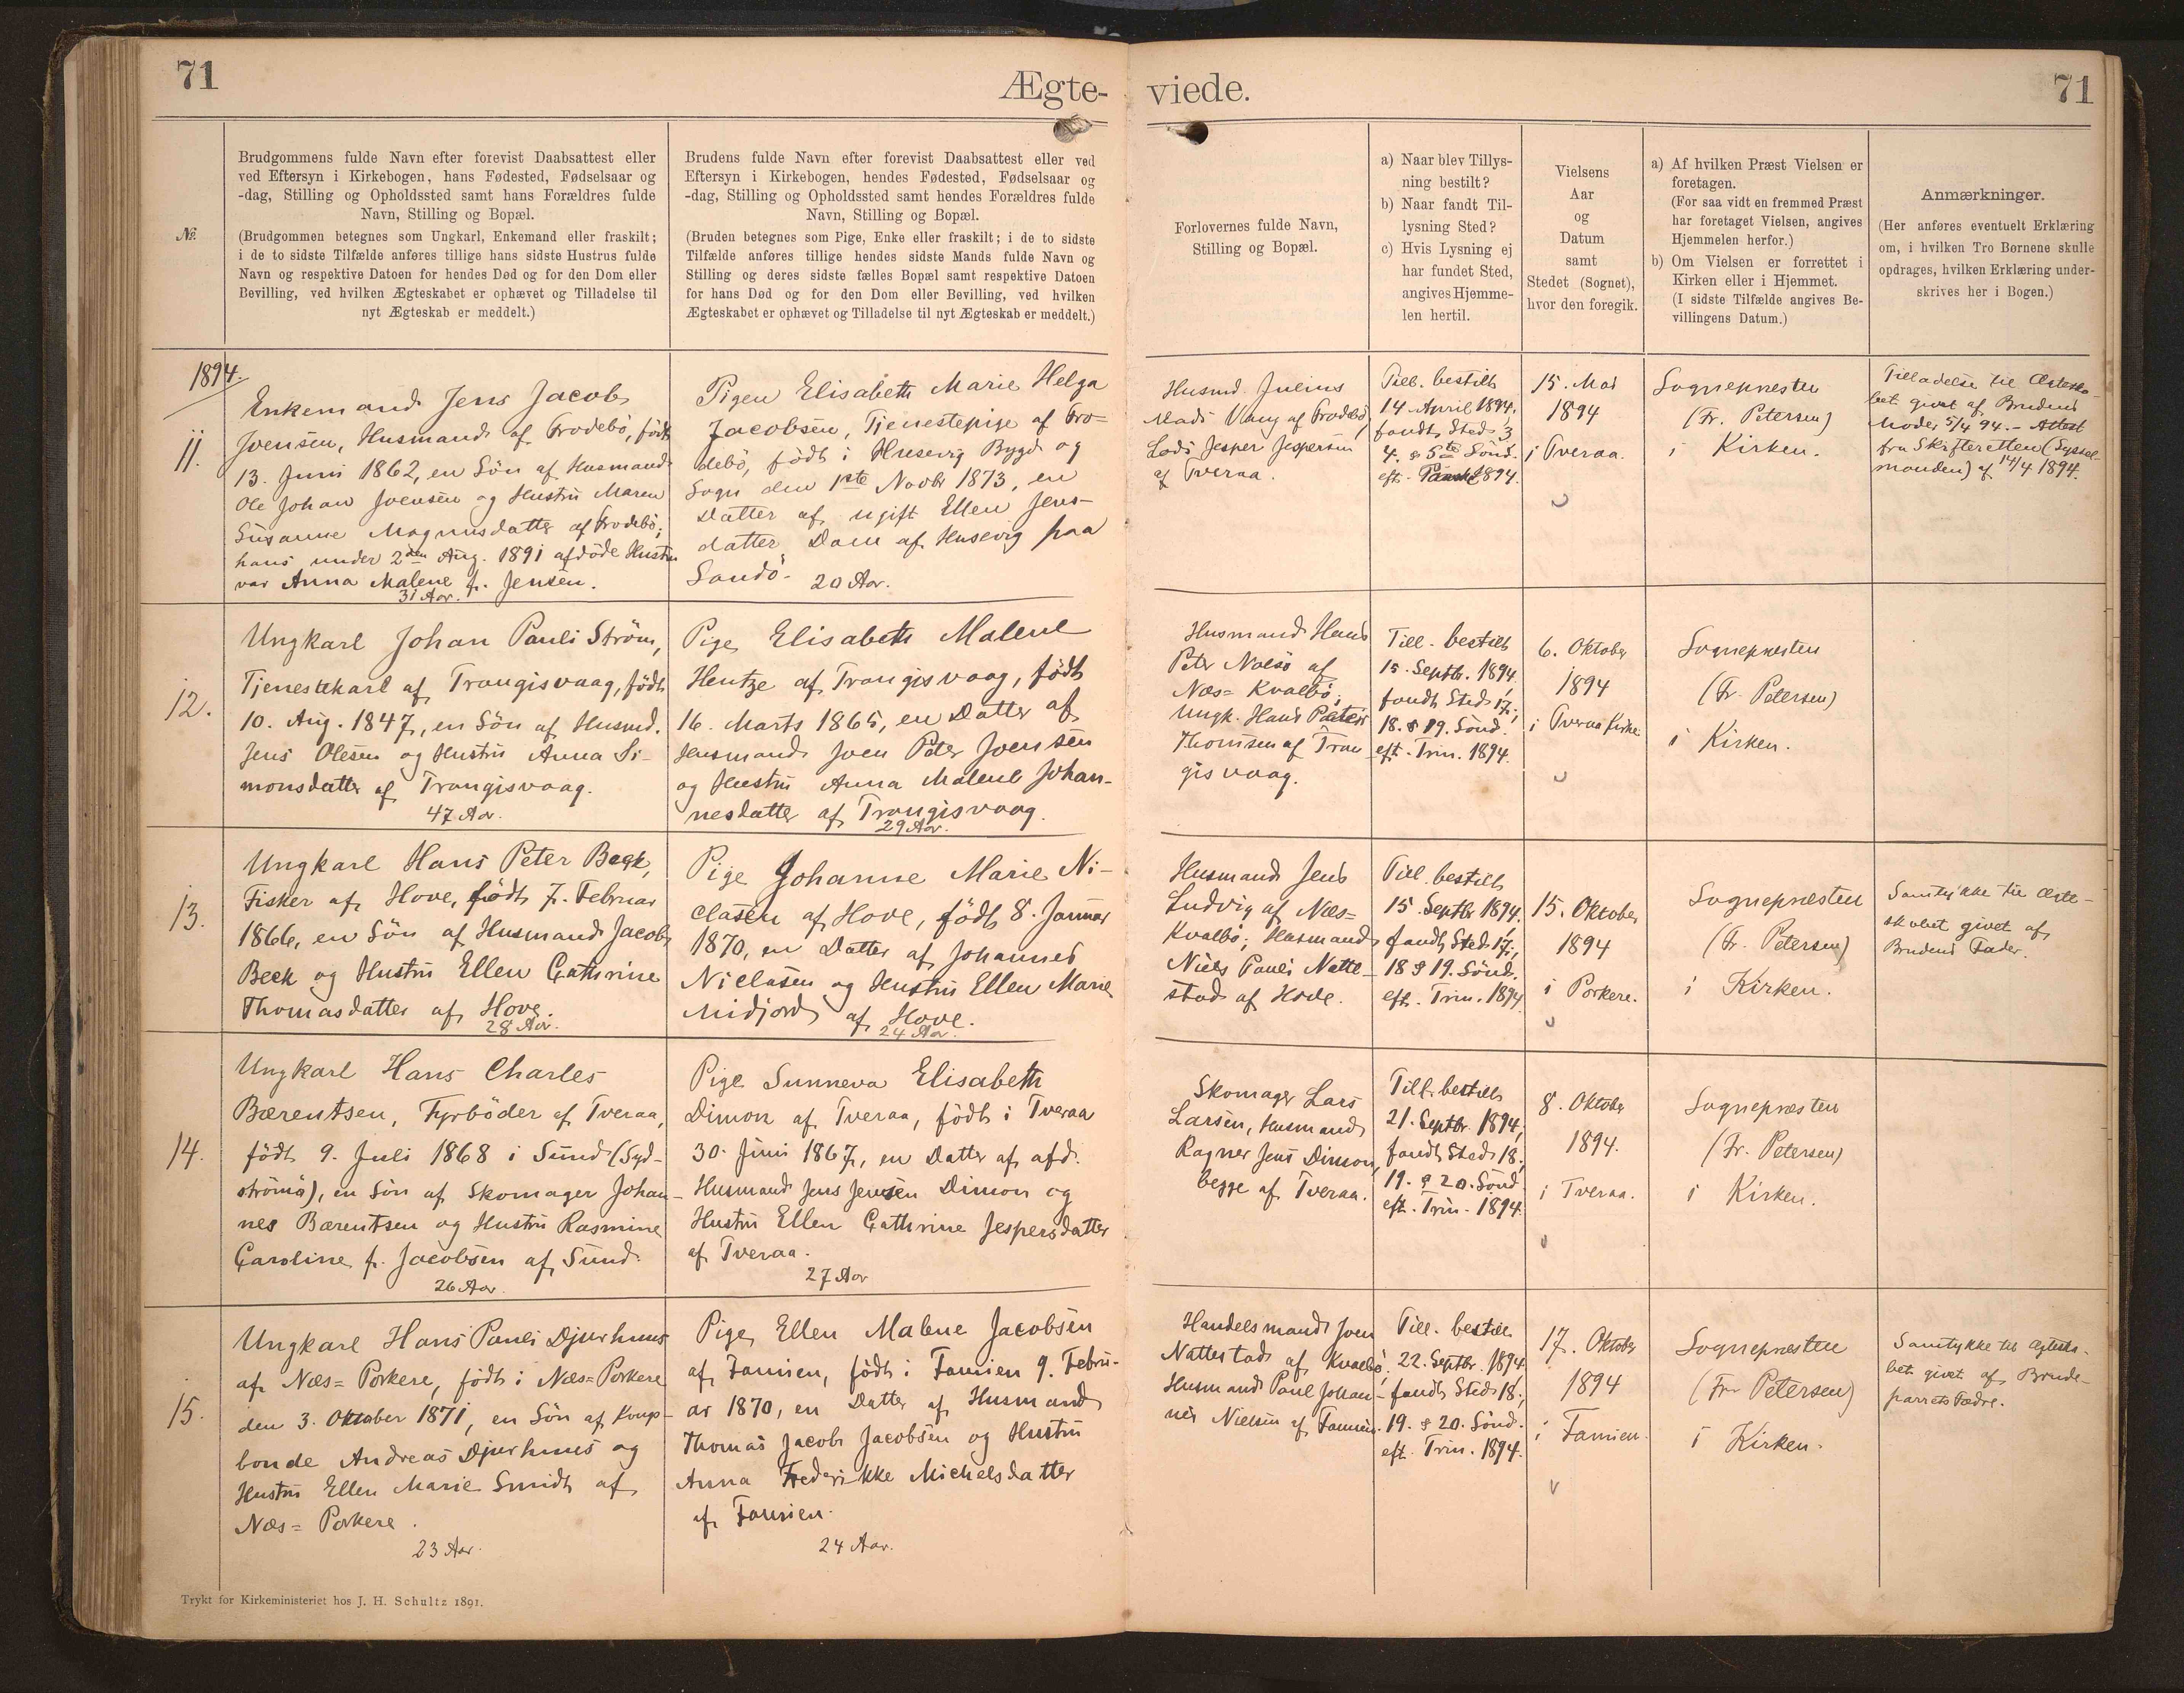 71
Ægte-
viede.
71
№
Brudgommens fulde Navn efter forevist Daabsattest eller
ved Eftersyn i Kirkebogen, hans Fødested, Fødselsaar og
-dag, Stilling og Opholdssted samt hans Forældres fulde
Navn, Stilling og Bopæl.
(Brudgommen betegnes som Ungkarl, Enkemand eller fraskilt;
i de to sidste Tilfælde anføres tillige hans sidste Hustrus fulde
Navn og respektive Datoen for hendes Død og for den Dom eller
Bevilling, ved hvilken Ægteskabet er ophævet og Tilladelse til
nyt Ægteskab er meddelt.)
Brudens fulde Navn efter forevist Daabsattest eller ved
Eftersyn i Kirkebogen, hendes Fødested, Fødselsaar og
-dag, Stilling og Opholdssted samt hendes Forældres fulde
Navn, Stilling og Bopæl.
(Bruden betegnes som Pige, Enke eller fraskilt; i de to sidste
Tilfælde anføres tillige hendes sidste Mands fulde Navn og
Stilling og deres sidste fælles Bopæl samt respektive Datoen
for hans Død og for den Dom eller Bevilling, ved hvilken
Ægteskabet er ophævet og Tilladelse til nyt Ægteskab er meddelt.)
Forlovernes fulde Navn,
Stilling og Bopæl.
a) Naar blev Tillys-
ning bestilt?
b) Naar fandt Til-
lysning Sted?
c) Hvis Lysning ej
har fundet Sted,
angives Hjemme-
len hertil.
Vielsens
Aar
og
Datum
samt
Stedet (Sognet),
hvor den foregik.
a) Af hvilken Præst Vielsen er
foretagen.
(For saa vidt en fremmed Præst
har foretaget Vielsen, angives
Hjemmelen herfor.)
b) Om Vielsen er forrettet i
Kirken eller i Hjemmet.
(I sidste Tilfælde angives Be-
villingens Datum.)
Anmærkninger.
(Her anføres eventuelt Erklæring
om, i hvilken Tro Børnene skulle
opdrages, hvilken Erklæring under-
skrives her i Bogen.)
1894.
11.
Enkemand Jens Jacob
Joensen, Husmand af Frodebö, födt
13. Juni 1862, en Sön af Husmand
Ole Johan Joensen og Hustru Maren
Susanne Magnusdatter af Frodebö;
hans under 2den Aug. 1891 afdöde Hustru
var Anna Malene f. Jensen.
31 Aar.
Pigen Elisabeth Marie Helga
Jacobsen, Tjenestepige af Fro-
debö, födt i Husevig Bygd og
Sogn den 1ste Novbr 1873, en
Datter af ugift Ellen Jens-
datter Dam af Husevig paa
Sandö.
20 Aar.
Husmd. Julius
Mads Vang af Frodebö,
Lods Jesper Jespersen
af Tveraa.
Till. bestilt
14 April 1894,
fandt Sted 3,
4. & 5te Sönd.
eft. Paaske 1894.
15. Mai
1894
i Tveraa.
Sognepræsten
(Fr. Petersen)
i Kirken.
Tilladelse til Ægteska-
bet givet af Brudens
Moder 5/4 94. - Attest
fra Skifteretten (Syssel-
manden) af 14/4 1894.
12.
Ungkarl Johan Pauli Ström,
Tjenestekarl af Trangisvaag, födt
10. Aug. 1847, en Sön af Husmd.
Jens Olesen og Hustru Anna Si-
monsdatter af Trangisvaag.
47 Aar.
Pige Elisabeth Malene
Hentze af Trangisvaag, födt
16. Marts 1865, en Datter af
Husmand Joen Peter Joensen
og Hustru Anna Malene Johan-
nesdatter af Trangisvaag.
29 Aar.
Husmand Hans
Peter Nolsö af
Næs= Kvalbö;
Ungk. Hans Peter
Thomsen af Tran
gisvaag.
Till. bestilt
15. Septbr. 1894.
fandt Sted 17;
18. & 19. Sönd.
eft. Trin. 1894.
6. Oktober
1894
i Tveraa Kirke
Sognepræsten
(Fr. Petersen)
i Kirken.
13.
Ungkarl Hans Peter Beck,
Fisker af Hove, födt 7. Februar
1866, en Sön af Husmand Jacob
Beck og Hustru Ellen Cathrine
Thomasdatter af Hove.
28 Aar.
Pige Johanne Marie Ni-
clasen af Hove, födt 8. Januar
1870, en Datter af Johannes
Niclasen og Hustru Ellen Marie
Midjord af Hove.
24 Aar.
Husmand Jens
Ludvig af Næs=
Kvalbö; Husmand
Niels Pauli Natte-
stad af Hove.
Till. bestilt
15 Septbr 1894,
fandt Sted 17;
18 & 19. Sönd.
eft. Trin. 1894
15. Oktober
1894
i Porkere.
Sognepræsten
(Fr. Petersen)
i Kirken.
Samtykke til Ægte-
skabet givet af
Brudens Fader.
14.
Ungkarl Hans Charles
Bærentsen, Fyrböder af Tveraa,
födt 9. Juli 1868 i Sund (Syd-
strömö), en Sön af Skomager Johan-
nes Bærentsen og Hustru Rasmine
Caroline f. Jacobsen af Sund.
26 Aar.
Pige Sunneva Elisabeth
Dimon af Tveraa, födt i Tveraa
30. Juni 1867, en Datter af afd.
Husmand Jens Jensen Dimon og
Hustru Ellen Cathrine Jespersdatter
af Tveraa.
27 Aar
Skomager Lars
Larsen, Husmand
Ragner Jens Dimon,
begge af Tveraa.
Till. bestilt
21. Septbr. 1894,
fandt Sted 18;
19. & 20. Sönd
eft. Trin. 1894.
8. Oktober
1894.
i Tveraa.
Sognepræsten
(Fr. Petersen)
i Kirken.
15.
Ungkarl Hans Pauli Djurhuus
af Næs= Porkere, födt i Næs=Porkere
den 3. Oktober 1871, en Sön af Kongs-
bonde Andreas Djurhuus og
Hustru Ellen Marie Smidt af
Næs= Porkere.
23 Aar.
Pige Ellen Malene Jacobsen
af Famien, födt i Famien 9. Febru-
ar 1870, en Datter af Husmand
Thomas Jacob Jacobsen og Hustru
Anna Frederikke Michelsdatter
af Famien.
24 Aar.
Handelsmand Joen
Nattestad af Kvalbö;
Husmand Paul Johan-
nes Nielsen af Famien.
Till. bestilt
22. Septbr. 1894
fandt Sted 18;
19. & 20. Sönd.
eft. Trin. 1894.
17. Oktober
1894
i Famien.
Sognepræsten
(Fr. Petersen)
i Kirken.
Samtykke til Ægteska-
bet givet af Brude-
parrets Fædre.
Trykt for Kirkeministeriet hos J. H. Schultz 1891.